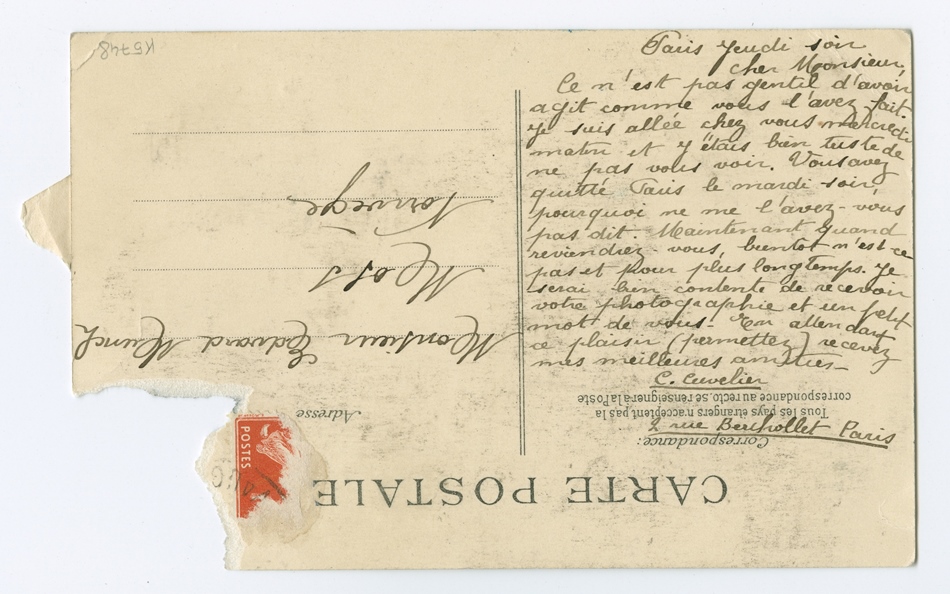 Paris Jeudi soir
cher Monsieur,
Ce n'est pas gentil d'avoir
agit comme vous l'avez fait.
Je suis allée chez vous mercredi
matin et j'étais bien triste de
ne pas vous voir. Vous avez
quitté Paris le mardi soir,
pourquoi ne me l'avez-vous
pas dit. Maintenant quand
reviendrez-vous, bientot n'est-ce
pas et pour plus longtemps. Je
serai bien contente de recevoir
votre photographie et un petit
mot de vous- En attendant
ce plaisir (permettez) recevez
mes meilleures amitiés-
C. Cuvelier
2 rue Berthollet Paris
CARTE POSTALE
Correspondance:
Tous les pays étrangers n'acceptent pas la
correspondance au recto, se renseigner à la Poste
Adresse
Monsieur Edvard Munch
Moss
Norvège
POSTES
K5748